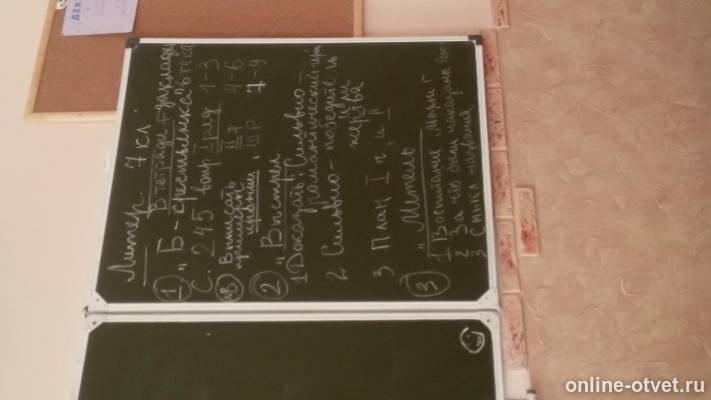 Литер. 7 кл.
В тетради + закладки
① "Б-крестьянка" в тек
С. 245 вопр I ряд 1-3
II р 4-6
III р 7-9
В Выписать
приметать
② "Выстрел
1 Доказать: Сильвио -
романтический герой
2 Сильвио - победитель
или
жертва
3 План I ч, и II
③ "Метель
1 Воспитание Марьи Г
2 За что были наказаны герои
3 Смысл названия
ДЕЖ
online-otvet.ru